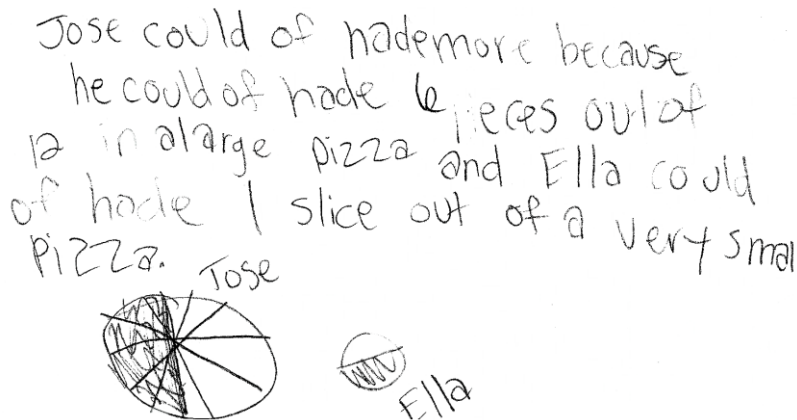 Jose could of hademore because
he could of hade 6 pieces out of
12 in alarge pizza and Ella could
of hade 1 slice out of a very smal
pizza.
Jose
Ella